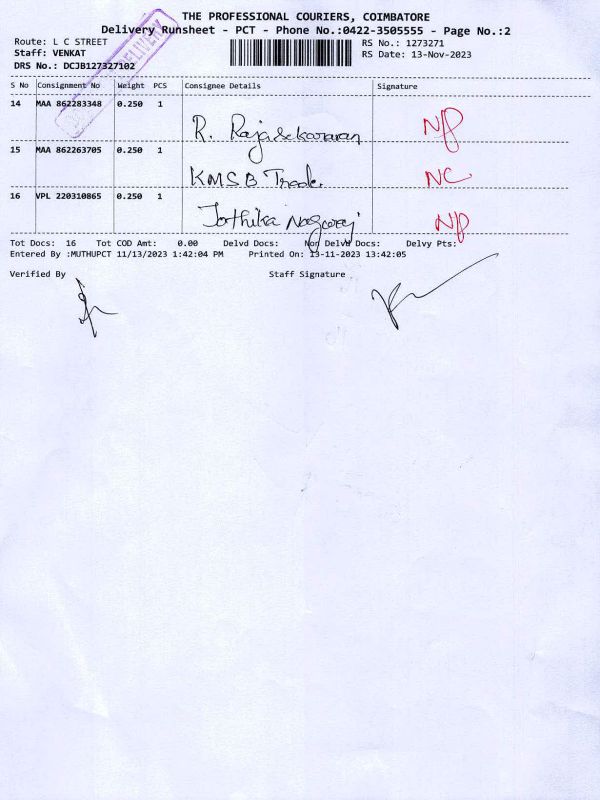 THE PROFESSIONAL COURIERS, COIMBATORE
Delivery Runsheet - PCT - Phone No.:0422-3505555 - Page No.:2
Route: L C STREET RS No.: 1273271
Staff: VENKAT RS Date: 13-Nov-2023
DRS No.: DCJB127327102
DELIVERY
S No Consignment No Weight PCS Consignee Details Signature
14 MAA 862283348 0.250 1 R. Rajasekararan NP
15 MAA 862263705 0.250 1 KMSB Trade. NC
16 VPL 220310865 0.250 1 Jothika Nagaraj NP
Tot Docs: 16 Tot COD Amt: 0.00 Delvd Docs: Non Delvd Docs: Delvy Pts:
Entered By :MUTHUPCT 11/13/2023 1:42:04 PM Printed On: 13-11-2023 13:42:05
Verified By Staff Signature